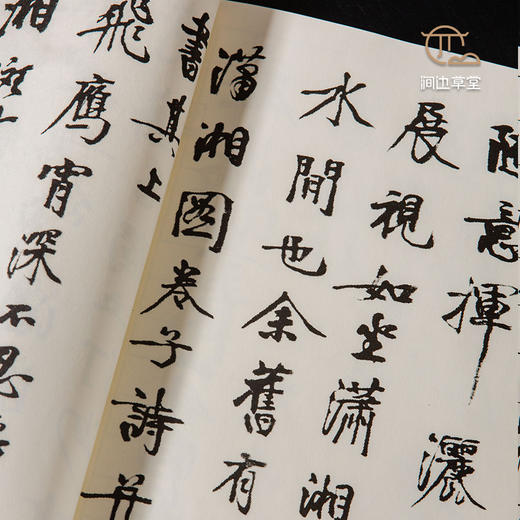 涧边草堂
意揮灑
展視如坐瀟湘
水間也余舊有
瀟湘圖卷子詩并
書其上
飛鷹宵深不思
湘